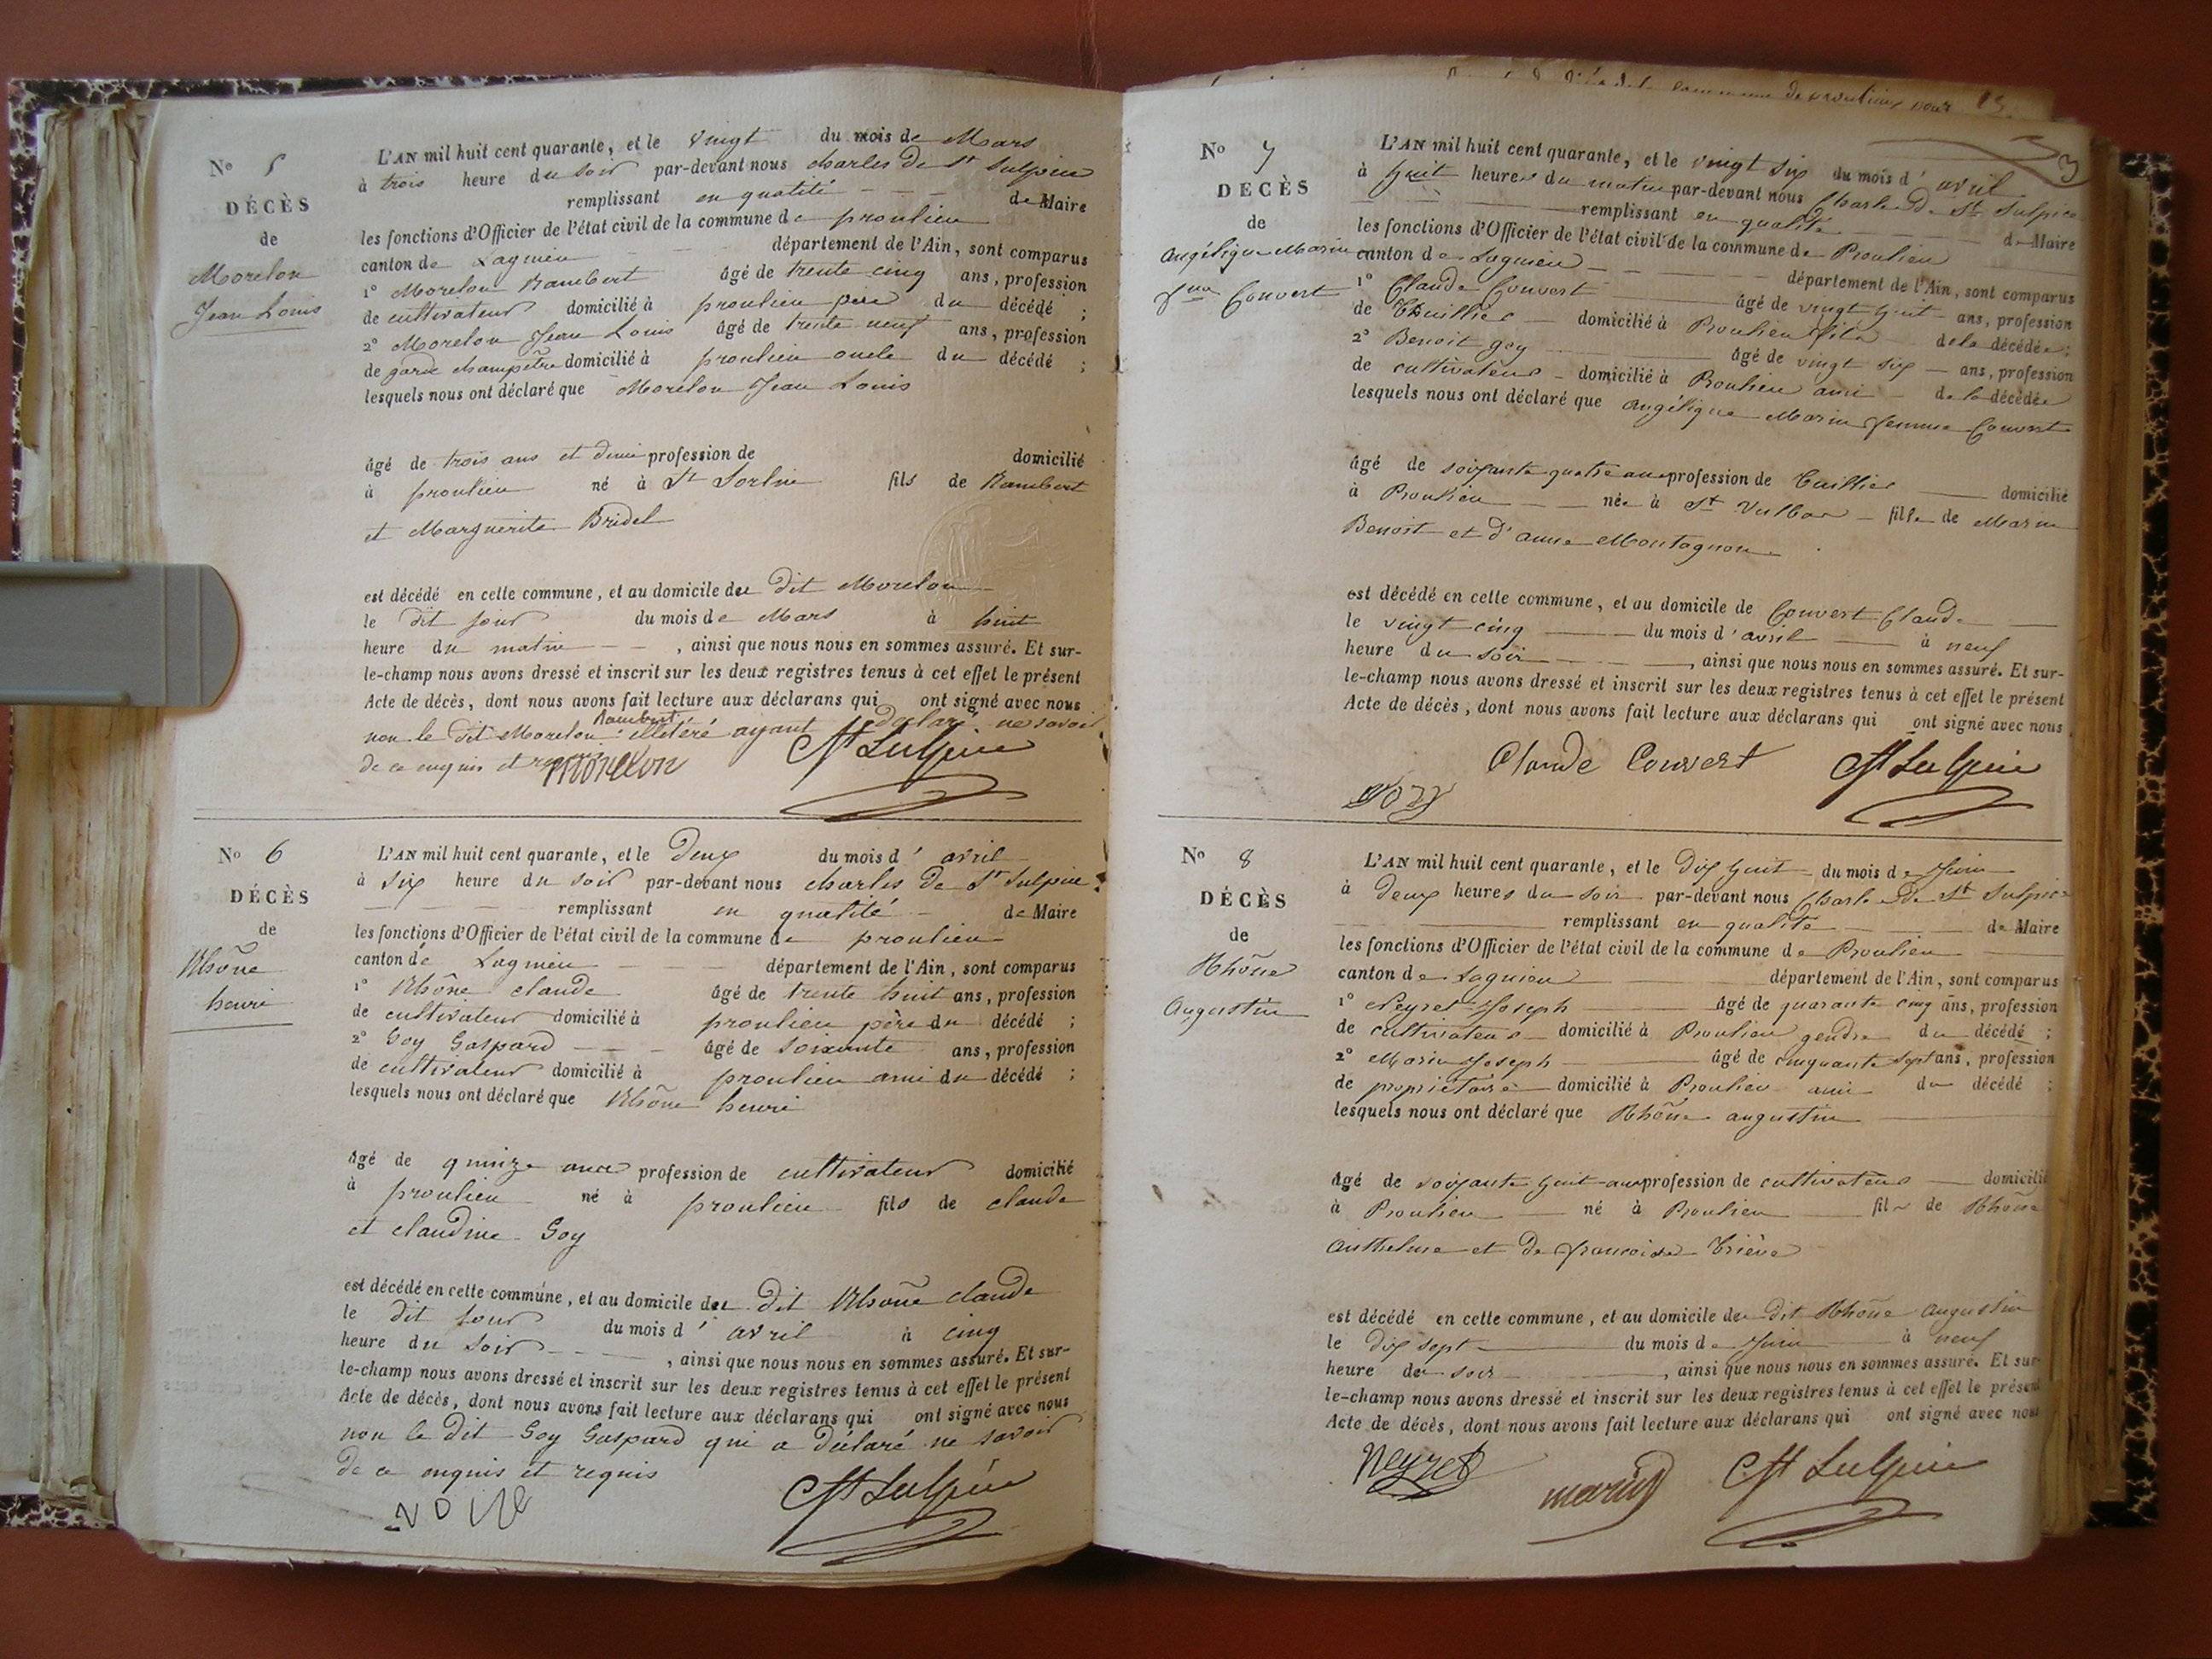 No 5
DÉCÈS
de
Morelon
Jean Louis
L'AN mil huit cent quarante, et le vingt du mois de Mars
à trois heure du soir par-devant nous charles de St Sulpice
remplissant en qualité de Maire
les fonctions d'Officier de l'état civil de la commune de proulieu
canton de Lagnieu département de l'Ain, sont comparus
1° Morelon Rambert âgé de trente cinq ans, profession
de cultivateur domicilié à proulieu père du décédé ;
2° Morelon Jean Louis âgé de trente neuf ans, profession
de garde champêtre domicilié à proulieu oncle du décédé ;
lesquels nous ont déclaré que Morelon Jean Louis
âgé de trois ans et demi profession de domicilié
à proulieu né à St Sorlin fils de Rambert
et Marguerite Bridel
est décédé en cette commune, et au domicile du dit Morelon
le dit jour du mois de Mars à huit
heure du matin , ainsi que nous nous en sommes assuré. Et sur-
le-champ nous avons dressé et inscrit sur les deux registres tenus à cet effet le présent
Acte de décès, dont nous avons fait lecture aux déclarans qui ont signé avec nous
non le dit Morelon Rambert illétéré ayant déclaré ne savoir
de ce enquis et
morelon CSt Sulpice
No 6
DÉCÈS
de
Rhône
henri
L'AN mil huit cent quarante, et le deux du mois d'avril
à six heure du soir par-devant nous charles de St Sulpice
remplissant en qualité de Maire
les fonctions d'Officier de l'état civil de la commune de proulieu
canton de Lagnieu département de l'Ain, sont comparus
1° Rhône claude âgé de trente huit ans, profession
de cultivateur domicilié à proulieu père du décédé ;
2° Goy Gaspard âgé de soixante ans, profession
de cultivateur domicilié à proulieu ami du décédé ;
lesquels nous ont déclaré que Rhône henri
âgé de quinze ans profession de cultivateur domicilié
à proulieu né à proulieu fils de claude
et claudine Goy
est décédé en cette commune, et au domicile du dit Rhône claude
le dit jour du mois d'avril à cinq
heure du soir , ainsi que nous nous en sommes assuré. Et sur-
le-champ nous avons dressé et inscrit sur les deux registres tenus à cet effet le présent
Acte de décès, dont nous avons fait lecture aux déclarans qui ont signé avec nous
non le dit Goy Gaspard qui a déclaré ne savoir
de ce enquis et requis
CSt Sulpice
3
No 7
DECÈS
de
Angélique Marin
fme Couvert
L'AN mil huit cent quarante, et le vingt six du mois d'avril
à huit heures du matin par-devant nous Charle De St Sulpice
remplissant en qualité de Maire
les fonctions d'Officier de l'état civil de la commune de Proulieu
canton de Lagnieu département de l'Ain, sont comparus
1° Claude Couvert âgé de vingt huit ans, profession
de Thuillier domicilié à Proulieu fils de la décédée ;
2° Benoit goy âgé de vingt six ans, profession
de cultivateur domicilié à Proulieu ami de la décédée
lesquels nous ont déclaré que angélique Marin femme Couvert
âgé de soixante quatre ans profession de Tuillier domicilié
à Proulieu née à St Vulbas fille de Marin
Benoit et d'anne Montagnon
est décédé en cette commune, et au domicile de Couvert Claude
le vingt cinq du mois d'avril à neuf
heure du soir , ainsi que nous nous en sommes assuré. Et sur-
le-champ nous avons dressé et inscrit sur les deux registres tenus à cet effet le présent
Acte de décès, dont nous avons fait lecture aux déclarans qui ont signé avec nous
Claude Couvert CSt Sulpice
No 8
DÉCÈS
de
Rhône
Augustin
L'AN mil huit cent quarante, et le dix huit du mois de Juin
à deux heures du soir par-devant nous Charle De St Sulpice
remplissant en qualité de Maire
les fonctions d'Officier de l'état civil de la commune de Proulieu
canton de Lagnieu département de l'Ain, sont comparus
1° Neyret Joseph âgé de quarante cinq ans, profession
de cultivateur domicilié à Proulieu gendre du décédé ;
2° Marin Joseph âgé de cinquante sept ans, profession
de propriétaire domicilié à Proulieu ami du décédé ;
lesquels nous ont déclaré que Rhône augustin
âgé de soixante huit ans profession de cultivateur domicilié
à Proulieu né à Proulieu fils de Rhône
Anthelme et de francoise Trière
est décédé en cette commune, et au domicile du dit Rhône Augustin
le dix sept du mois de Juin à neuf
heure du soir , ainsi que nous nous en sommes assuré. Et sur-
le-champ nous avons dressé et inscrit sur les deux registres tenus à cet effet le présent
Acte de décès, dont nous avons fait lecture aux déclarans qui ont signé avec nous
Neyret marin CSt Sulpice